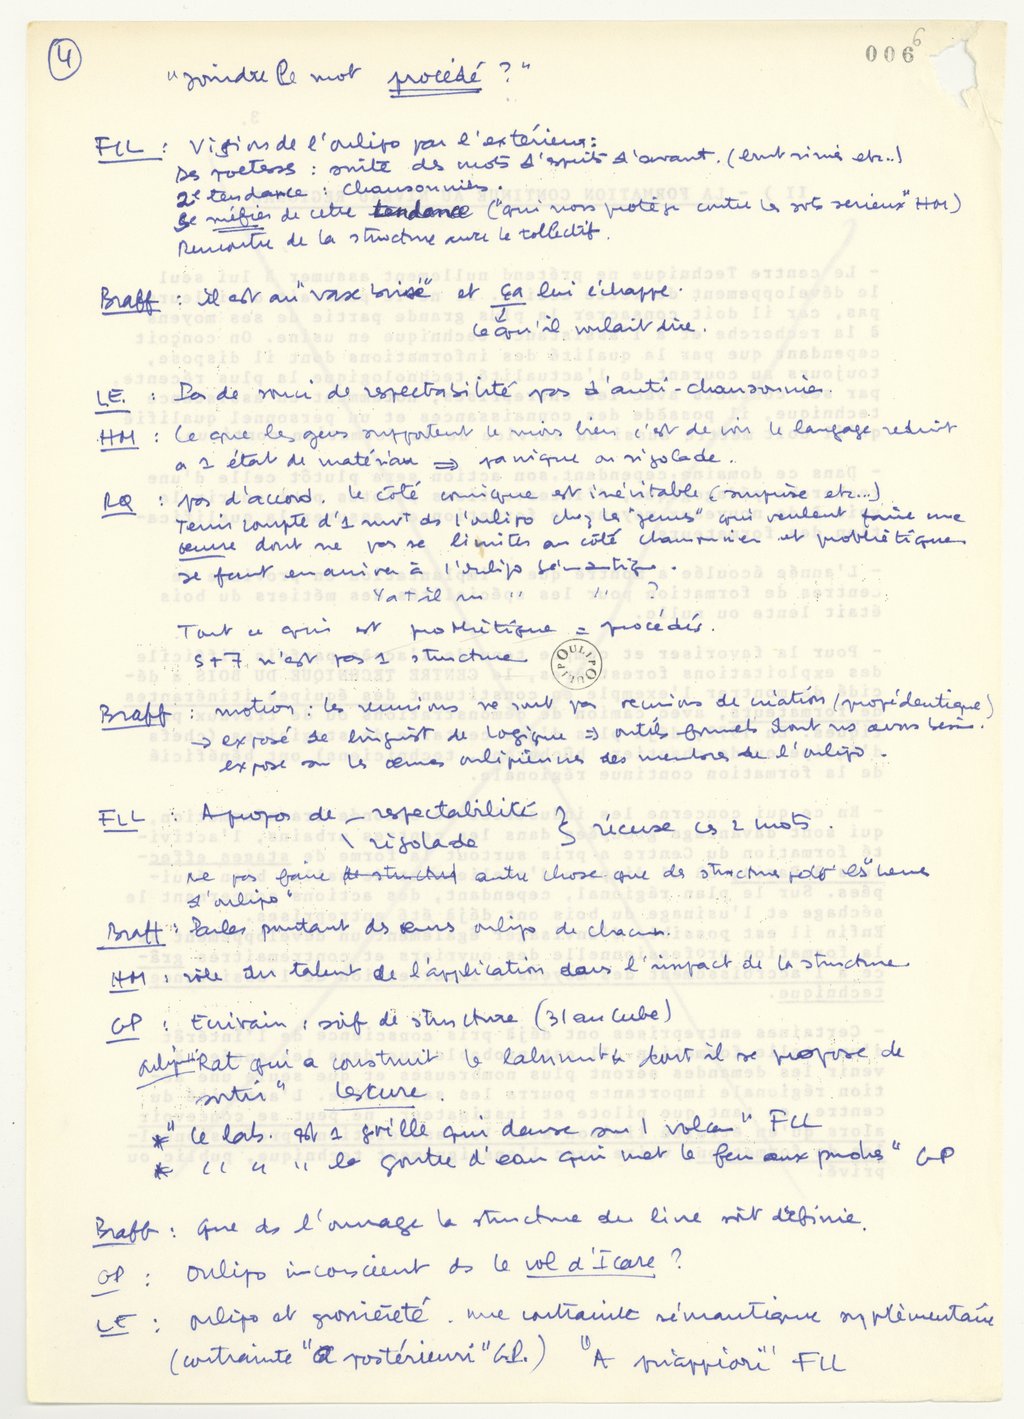 4
006
6
"joindre le mot procédé ?"
FLL : Visions de l'oulipo par l'extérieur :
Des poetesses : suite des mots d'esprits d'avant. (bout rimés etc..)
2e tendance : chansonniers.
Se méfier de cette tendance ("qui nous protège contre les sots serieux" HM)
Rencontre de la structure avec le collectif.
Braff : il est au "vase brisé" et ça lui échappe.
ce qu'il voulait dire.
LE : Pas de souci de respectabilité pas d'anti-chansonnier.
HM : Ce que les gens supportent le moins bien c'est de voir le langage reduit
a 1 état de matériau ⇒ panique ou rigolade.
RQ : pas d'accord. le côté comique est inévitable (surprise etc...)
Tenir compte d'1 mvt ds l'oulipo chez les "jeunes" qui veulent faire une
œuvre dont ne pas se limiter au côté chansonnier et prothétique
se faut en arriver à l'oulipo sémantique.
Ya t il un " " ?
Tout ce qui est prothétique = procédés.
S+7 n'est pas 1 structure
OULIPO OULIPO
Braff : motion : les reunions ne sont pas reunions de création (propédeutique)
→ exposé de linguist de logique ⇒ outils formels dont ns avons besoin.
exposé sur les œuvres oulipiennes des membres de l'oulipo.
FLL : A propos de – respectabilité
\ rigolade } récuse ces 2 mots.
ne pas faire de structures autre chose que des structures pour les "livres
d'oulipo"
Braff : Parler pourtant des œuvres oulipo de chacun.
HM : rôle du talent de l'application dans l'impact de la structure
GP : Ecrivain : soif de structure (31 au cube)
oulip "Rat qui a construit le labyrinthe dont il se propose de
sortir" Lescure.
* "Le lab. est 1 grille qui danse sur 1 volcan" FLL
* " " " la goutte d'eau qui met le feu aux poudres" GP
Braff : que ds l'ouvrage la structure du livre soit définie.
GP : Oulipo inconscient ds le vol d'Icare ?
LE : oulipo et grossièreté. une contrainte sémantique supplémentaire
(contrainte "a postérieuri" GP.) "A priappiori" FLL